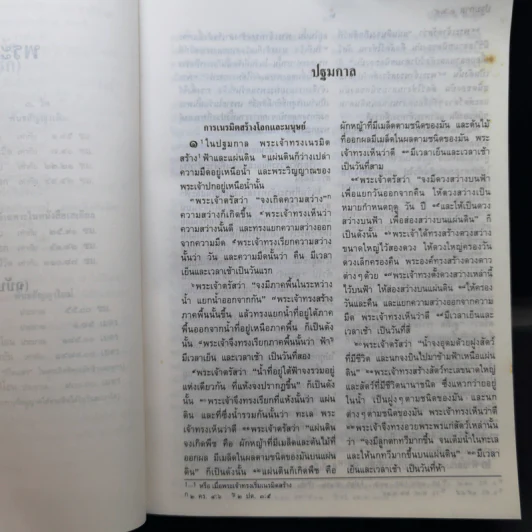 ปฐมกาล
การเนรมิตสร้างโลกและมนุษย์
๑ ในปฐมกาล พระเจ้าทรงเนรมิต
สร้าง ฟ้าและแผ่นดิน แผ่นดินก็ว่างเปล่า
ความมืดอยู่เหนือน้ำ และพระวิญญาณของ
พระเจ้าปกอยู่เหนือน้ำนั้น
พระเจ้าตรัสว่า “จงเกิดความสว่าง”
ความสว่างก็เกิดขึ้น พระเจ้าทรงเห็นว่า
ความสว่างนั้นดี และทรงแยกความสว่างออก
จากความมืด พระเจ้าทรงเรียกความสว่าง
นั้นว่า วัน และความมืดนั้นว่า คืน มีเวลา
เย็นและเวลาเช้าเป็นวันแรก
พระเจ้าตรัสว่า “จงมีภาคพื้นในระหว่าง
น้ำ แยกน้ำออกจากกัน” พระเจ้าทรงสร้าง
ภาคพื้นนั้นขึ้น แล้วทรงแยกน้ำที่อยู่ใต้ภาค
พื้นออกจากน้ำที่อยู่เหนือภาคพื้น ก็เป็นดัง
นั้น พระเจ้าจึงทรงเรียกภาคพื้นนั้นว่า ฟ้า
มีเวลาเย็น และเวลาเช้า เป็นวันที่สอง
พระเจ้าตรัสว่า “น้ำที่อยู่ใต้ฟ้าจงรวมอยู่
แห่งเดียวกัน ที่แห้งจงปรากฏขึ้น” ก็เป็นดัง
นั้น พระเจ้าจึงทรงเรียกที่แห้งนั้นว่า แผ่น
ดิน และที่ซึ่งน้ำรวมกันนั้นว่า ทะเล พระ
เจ้าทรงเห็นว่าดี พระเจ้าตรัสว่า “แผ่นดิน
จงเกิดพืช คือ ผักหญ้าที่มีเมล็ดและต้นไม้ที่
ออกผล มีเมล็ดในผลตามชนิดของมันบนแผ่น
ดิน” ก็เป็นดังนั้น แผ่นดินก็เกิดพืช คือ
ผักหญ้าที่มีเมล็ดตามชนิดของมัน และต้นไม้
ที่ออกผลมีเมล็ดในผลตามชนิดของมัน พระ
เจ้าทรงเห็นว่าดี มีเวลาเย็นและเวลาเช้า
เป็นวันที่สาม
พระเจ้าตรัสว่า “จงมีดวงสว่างบนฟ้า
เพื่อแยกวันออกจากคืน ให้ดวงสว่างเป็น
หมายกำหนดฤดู วัน ปี และให้เป็นดวง
สว่างบนฟ้า เพื่อส่องสว่างบนแผ่นดิน” ก็
เป็นดังนั้น พระเจ้าได้ทรงสร้างดวงสว่าง
ขนาดใหญ่ไว้สองดวง ให้ดวงใหญ่ครองวัน
ดวงเล็กครองคืน พระองค์ทรงสร้างดวงดาว
ต่างๆ ด้วย พระเจ้าทรงตั้งดวงสว่างเหล่านี้
ไว้บนฟ้า ให้ส่องสว่างบนแผ่นดิน ให้ครอง
วันและคืน และแยกความสว่างออกจากความ
มืด พระเจ้าทรงเห็นว่าดี มีเวลาเย็นและ
เวลาเช้า เป็นวันที่สี่
พระเจ้าตรัสว่า “น้ำจงอุดมด้วยฝูงสัตว์
ที่มีชีวิต และนกจงบินไปมาข้ามฟ้าเหนือแผ่น
ดิน” พระเจ้าทรงสร้างสัตว์ทะเลขนาดใหญ่
และสัตว์ที่มีชีวิตนานาชนิด ซึ่งแหวกว่ายอยู่
ในน้ำ เป็นฝูงๆ ตามชนิดของมัน และนก
ต่างๆ ตามชนิดของมัน พระเจ้าทรงเห็นว่าดี
พระเจ้าจึงทรงอวยพระพรแก่สัตว์เหล่านั้น
ว่า “จงมีลูกดกทวีมากขึ้น จนเต็มน้ำในทะเล
และให้นกทวีมากขึ้นบนแผ่นดิน” มีเวลา
เย็นและเวลาเช้า เป็นวันที่ห้า
หรือ เมื่อพระเจ้าทรงเริ่มเนรมิตสร้าง
๒ คร. ๔:๖ ๒ ปต. ๓:๕